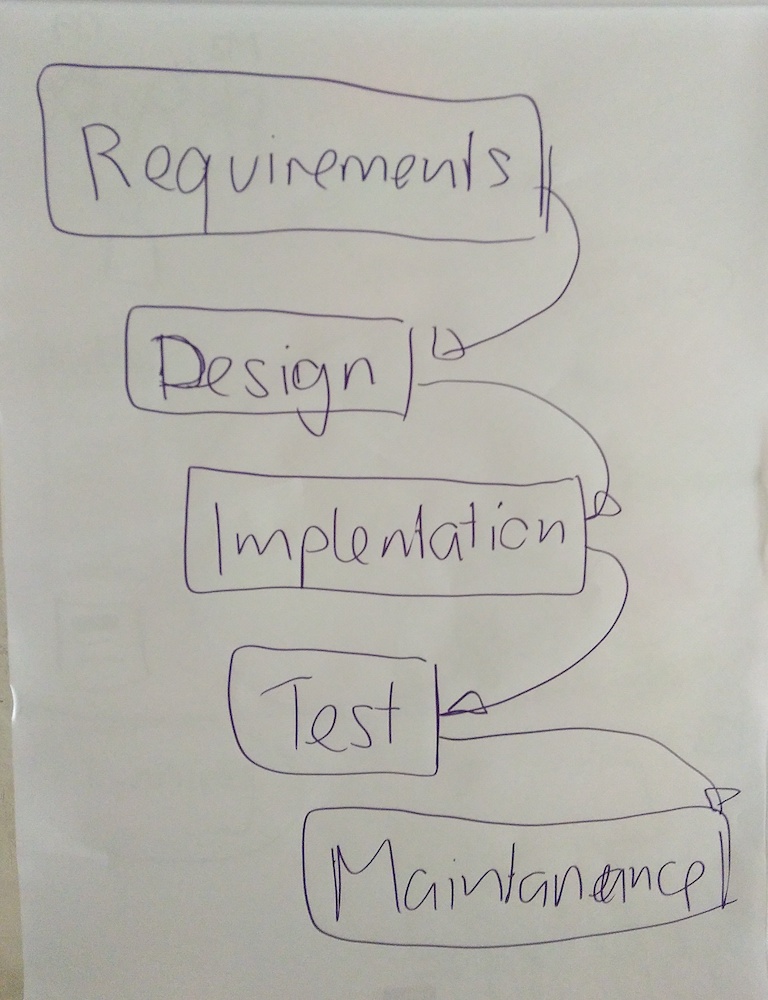 Requirements
Design
Implentation
Test
Maintanance